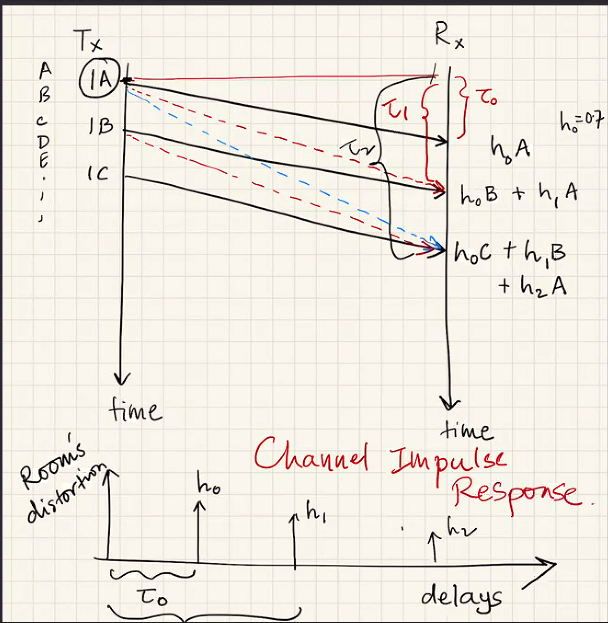 Tx
Rx
A
B
C
D
E
:
,
,
1A
1B
1C
τ₁
τ₀
τ₂
h₀=0.7
h₀A
h₀B + h₁A
h₀C + h₁B
+ h₂A
time
time
Channel Impulse
Response.
Room's
distortion
h₀
h₁
h₂
τ₀
delays